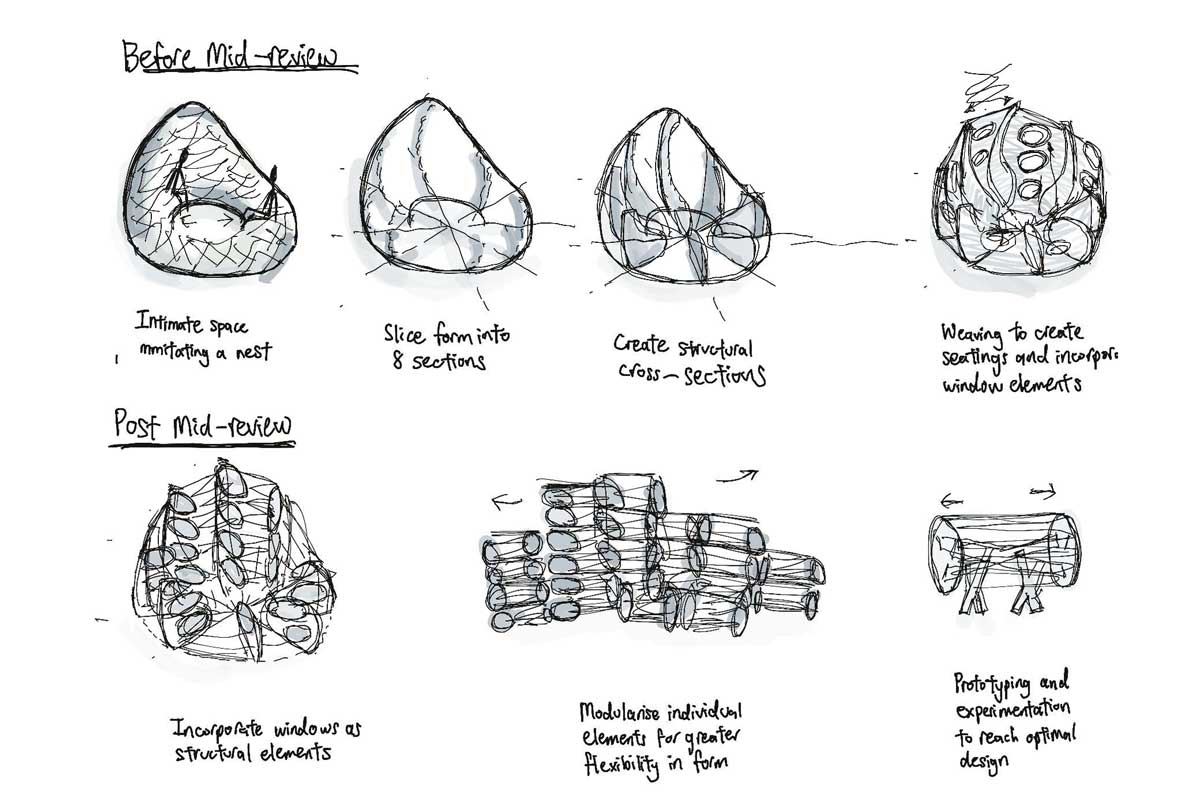 Before Mid-review
Intimate space
mmitating a nest
Slice form into
8 sections
Create structural
cross-sections
Weaving to create
seatings and incorpor
window elements
Post Mid-review
Incorporate windows as
structural elements
Modularise individual
elements for greater
flexibility in form
Prototyping and
experimentation
to reach optimal
design